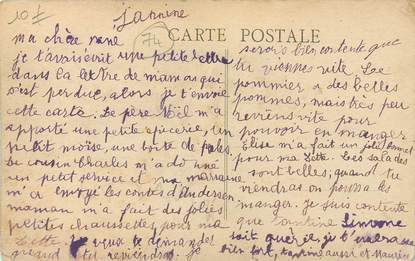 10 F
Jannine
74
CARTE POSTALE
ma chère mané
je t'avais écrit une petite lettre
dans la lettre de maman qui
s'est perdue, alors je t'envoie
cette carte. Le père Noël m'a
apporté une petite épicerie, un
petit moïse, une boîte de perles.
Le cousin Charles m'a donné
un petit service et ma marraine
m'a envoyé les contes d'Andersen
maman m'a fait des jolies
petites chaussettes, pour ma
je veux te demander
quand tu reviendras. je
serais bien contente que
tu viennes vite Le
pommier a des belles
pommes, mais très peu
reviens vite pour
pouvoir en manger.
Elise m'a fait un joli bonnet
pour ma Les salades
sont belles; quand tu
viendras on pourra les
manger. je suis contente
que tantine Simone
soit guérie, je t'embrasse
bien fort, tantine aussi et Maurice